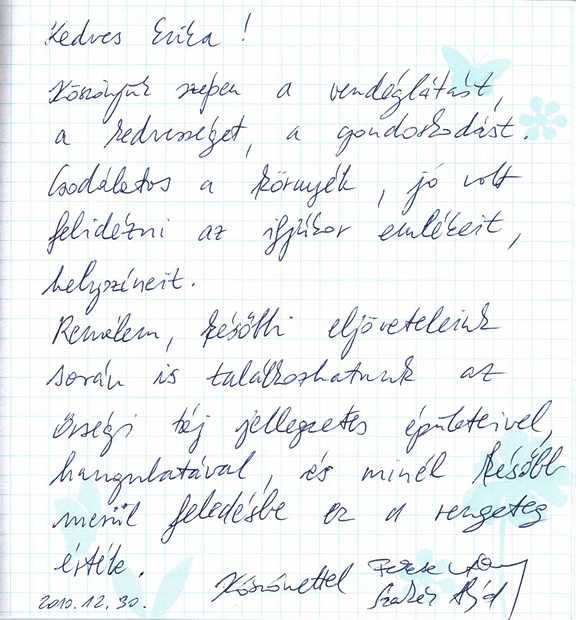 Kedves Erika!
Köszönjük szépen a vendéglátást,
a kedvességet, a gondoskodást.
Csodálatos a környék, jó volt
felidézni az ifjúkor emlékeit,
helyszíneit.
Remélem, későbbi eljöveteleink
során is találkozhatunk az
őrségi táj jellegzetes épületeivel,
hangulatával, és minél később
merül feledésbe ez a rengeteg
érték.
Köszönettel
2010.12.30.